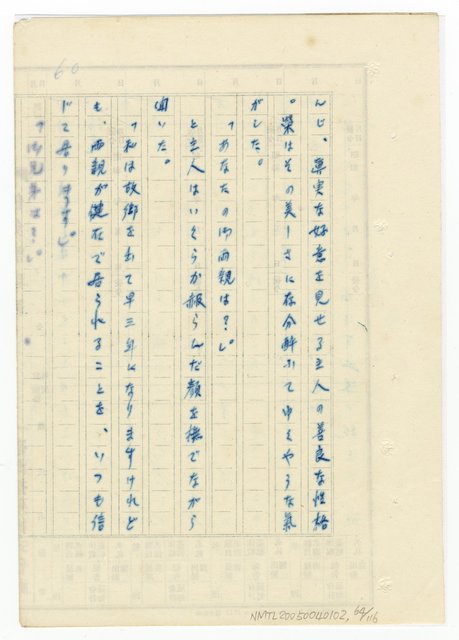 んじ、真実な好意を見せる主人の善良な性格
。榮はその美しさに存分酔ふてゆくやうな氣
がした。
「あなたの御両親は？」
と主人はいくらか赧らんだ顔を撫でながら
聞いた。
「私は故郷を出て早三年になりますけれど
も、両親が健在で居られることを、いつも信
じて居ります」
「御兄弟は？」
60
NMTL20050040102, 60/116